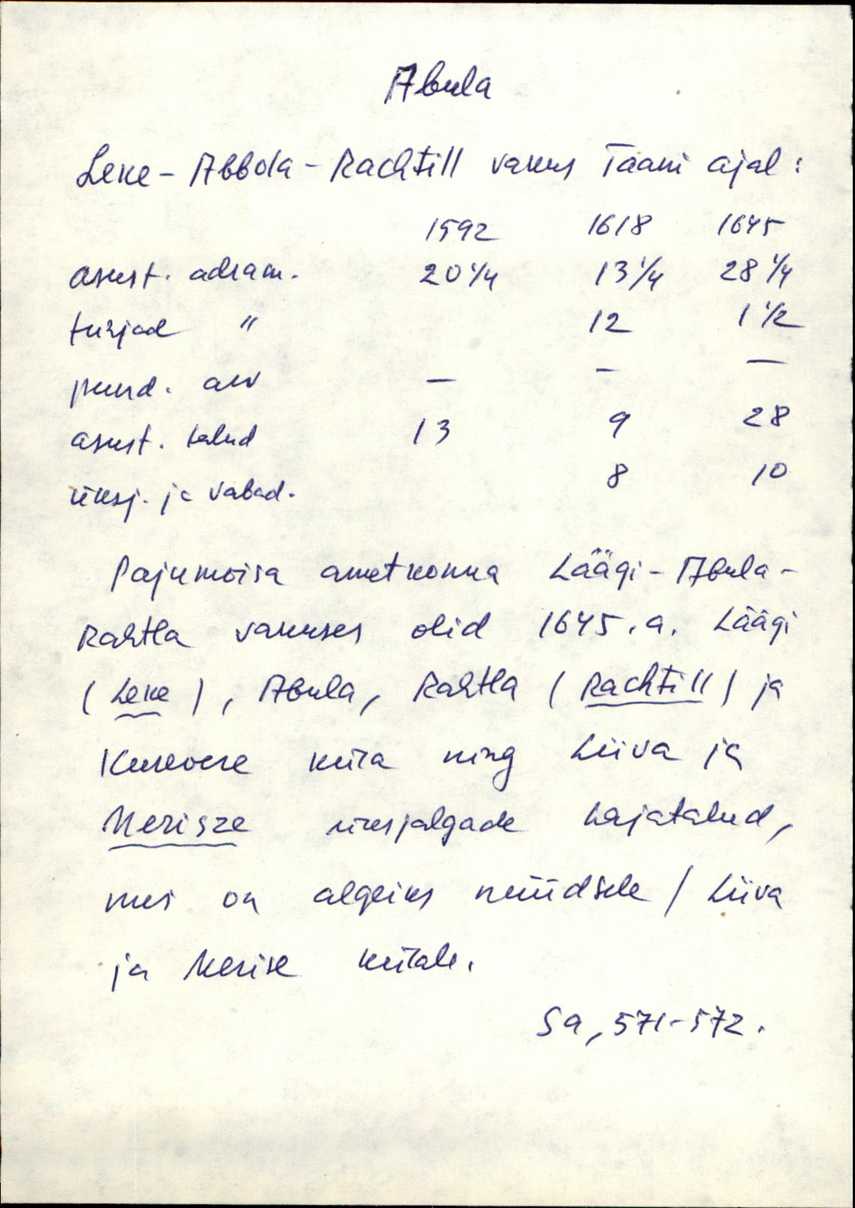 Abula
Leke - Abbola - Rachtill vakus Taani ajal :
1592 1618 1645
asust. adram. 20 1/4 13 1/4 28 1/4
tühjad " 12 1 1/2
puud. arv — — —
asust. talud 13 9 28
üksj. ja vabad. 8 10
Pajumõisa ametkonna Läägi - Abula -
Rahtla vakuses olid 1645. a. Läägi
(Leke), Abula, Rahtla (Rachtill) ja
Kurevere küla ning Liiva ja
Merisze üksjalgade hajatalud,
mis on algeiks nüüdsele / Liiva
ja Merise külale.
Sa, 571-572.